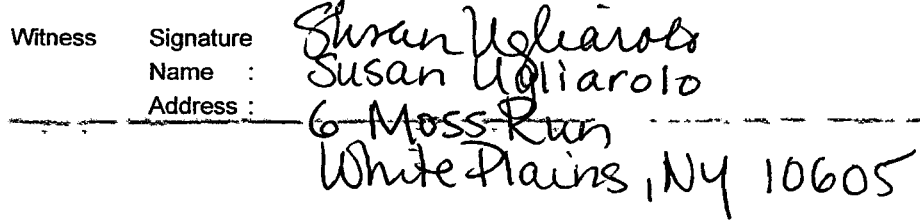 Witness Signature Susan Ugliarolo
Name : Susan Ugliarolo
Address : 6 Moss Run
White Plains, NY 10605